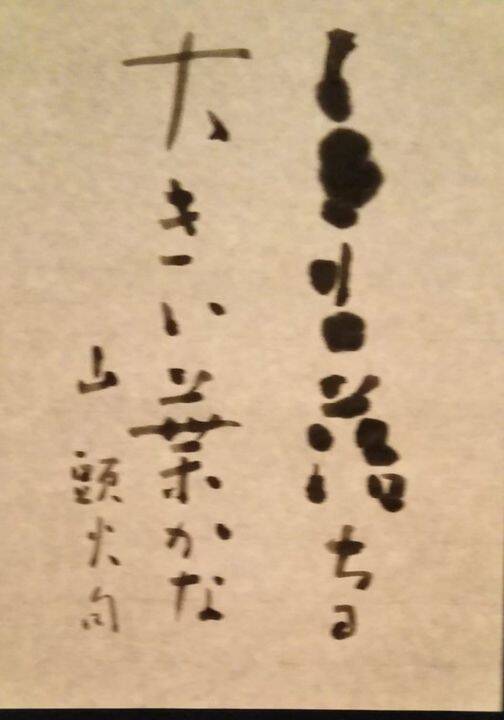 落ちる
大きい葉かな
山頭火句